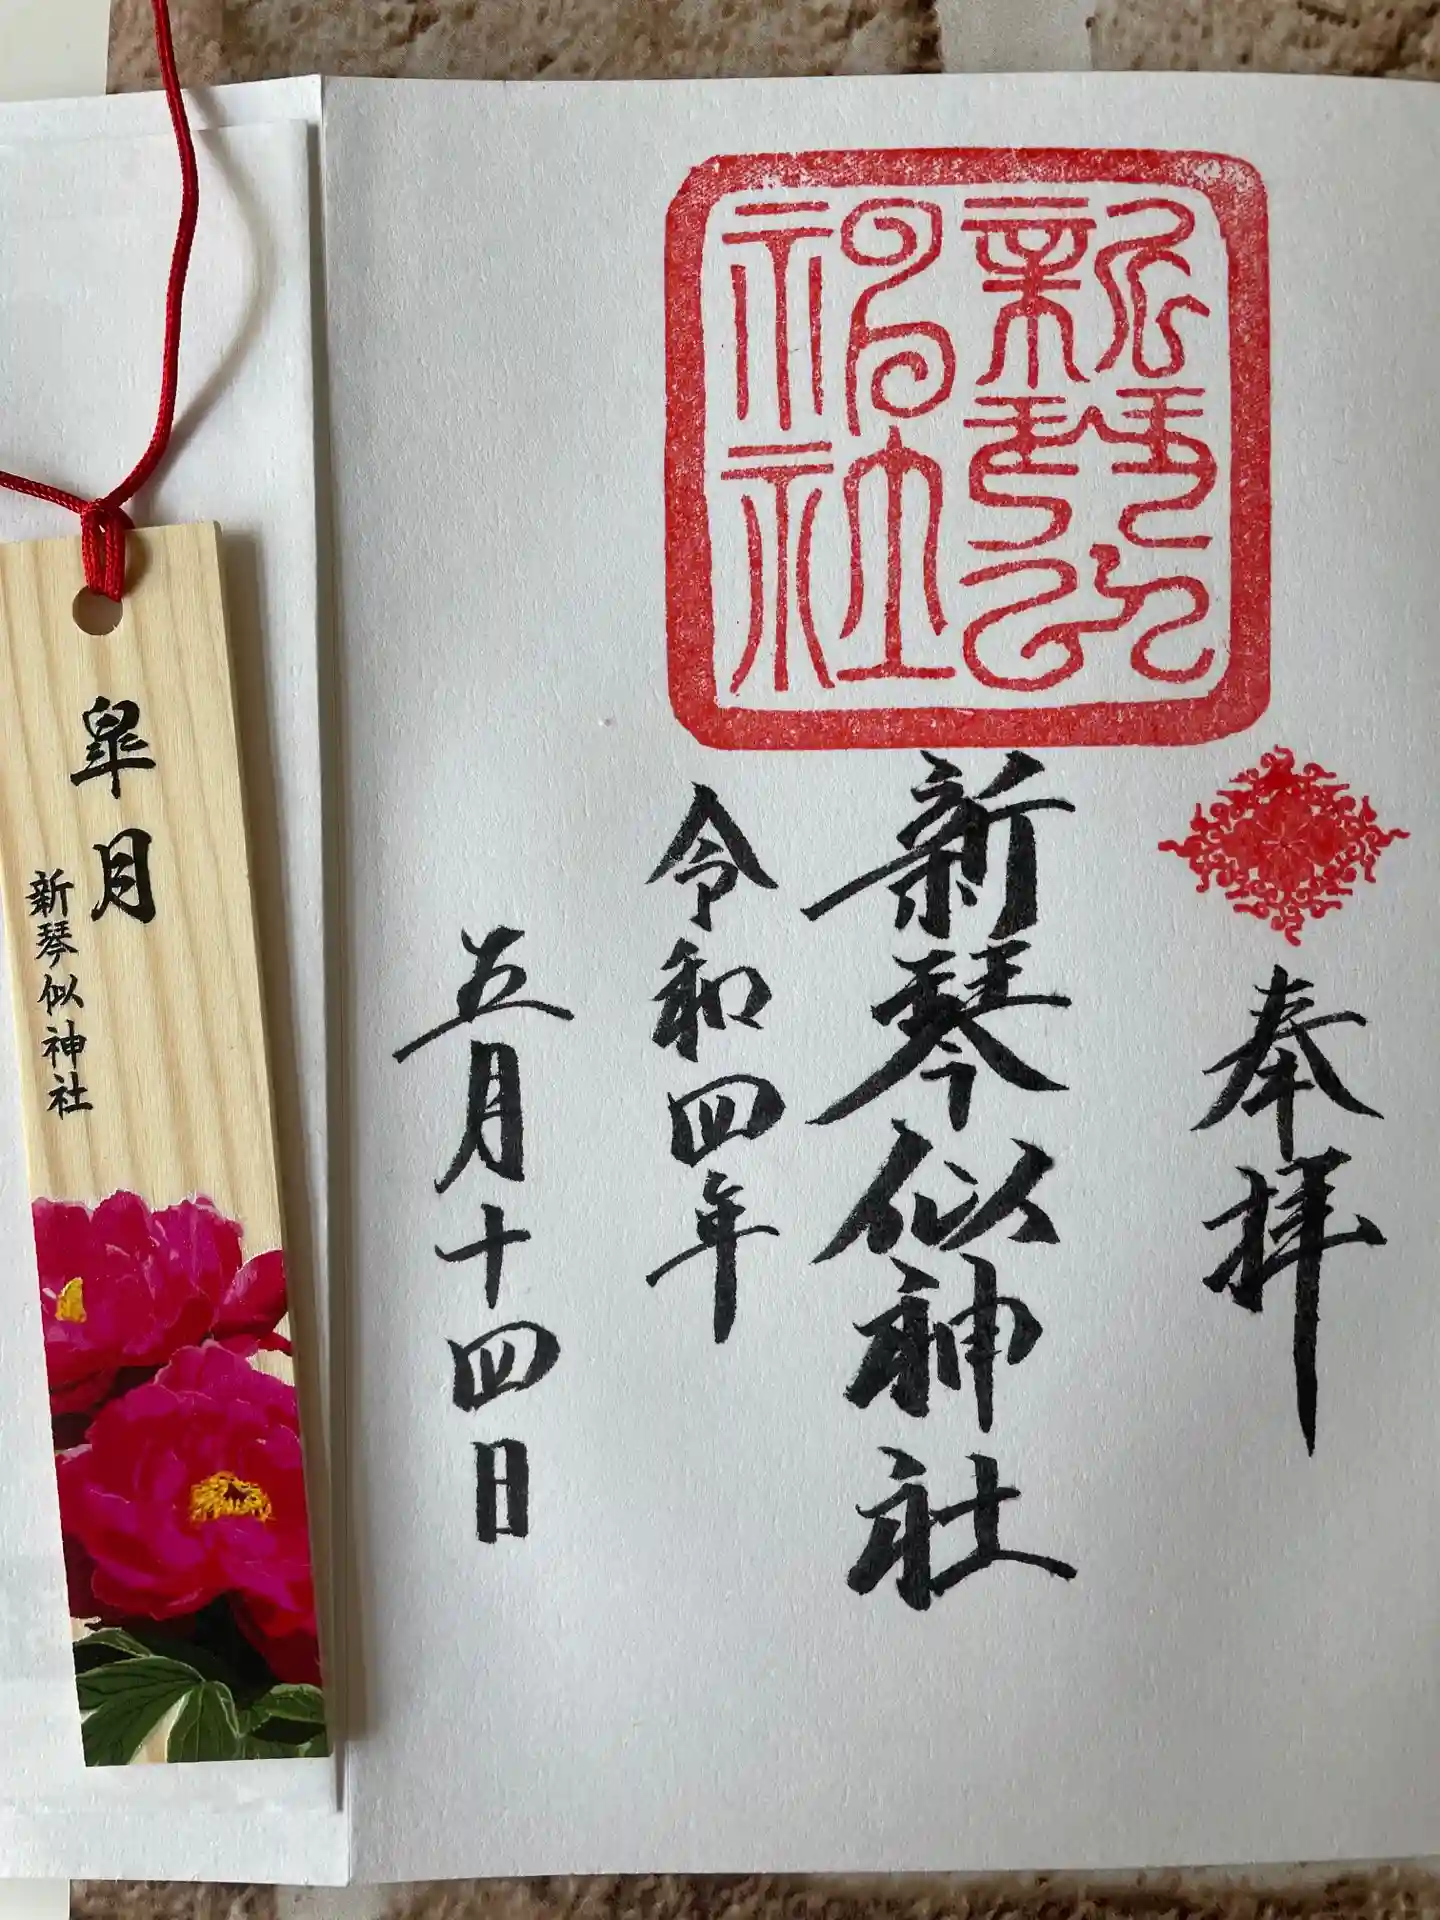 奉拝
新琴似神社
新琴似神社
令和四年
五月十四日
皐月
新琴似神社